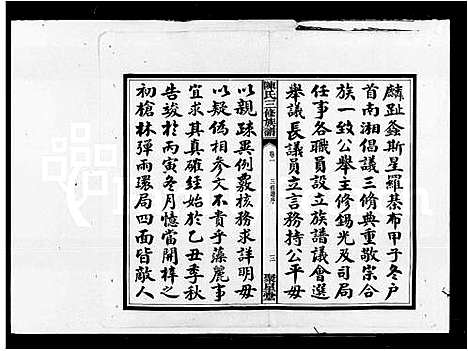 麟趾螽斯星羅棊布甲子冬戶
首南湘倡議三修典重敬宗合
族一致公舉主修錫光及司局
任事各職員設立族譜議會選
舉議長議員立言務持公平毋
陳氏三修族譜
卷一
三修譜序
三
聚星堂
以親疎異例覈核務求詳明毋
以疑偽相參文不貴乎藻麗事
宜求其真確經始於乙丑季秋
告竣於丙寅冬月憶當開梓之
初槍林彈雨環局四面皆敵人